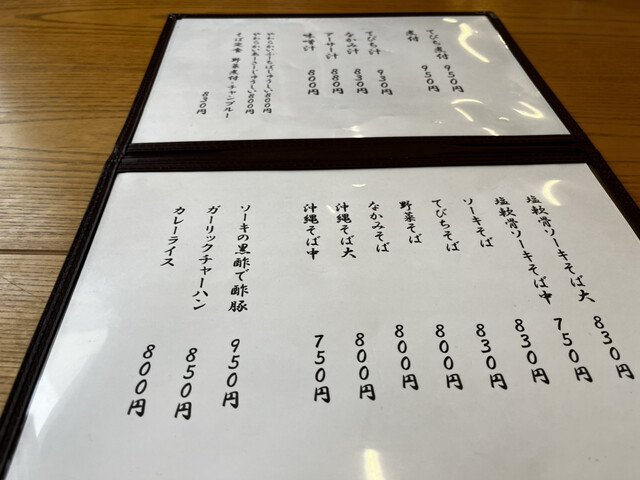 てびち煮付 950円
煮付 950円
てびち汁 930円
なかみ汁 830円
アーサー汁 880円
味噌汁 800円
そば定食 野菜煮付・チャンプルー 830円
塩軟骨ソーキそば大 830円
塩軟骨ソーキそば中 750円
ソーキそば 830円
てびちそば 830円
野菜そば 800円
なかみそば 800円
沖縄そば大 800円
沖縄そば中 750円
ソーキの黒酢で酢豚 950円
ガーリックチャーハン 850円
カレーライス 800円